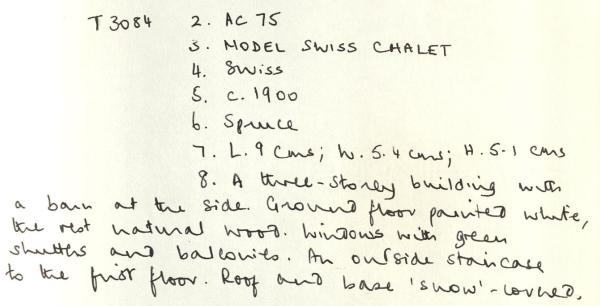 T 3084 2. AC 75
3. MODEL SWISS CHALET
4. Swiss
5. c. 1900
6. Spruce
7. L. 9 cms; W. 5.4 cms; H. 5.1 cms
8. A three-storey building with
a barn at the side. Ground floor painted white,
the rest natural wood. Windows with green
shutters and balconies. An outside staircase
to the first floor. Roof and base 'snow'-covered.